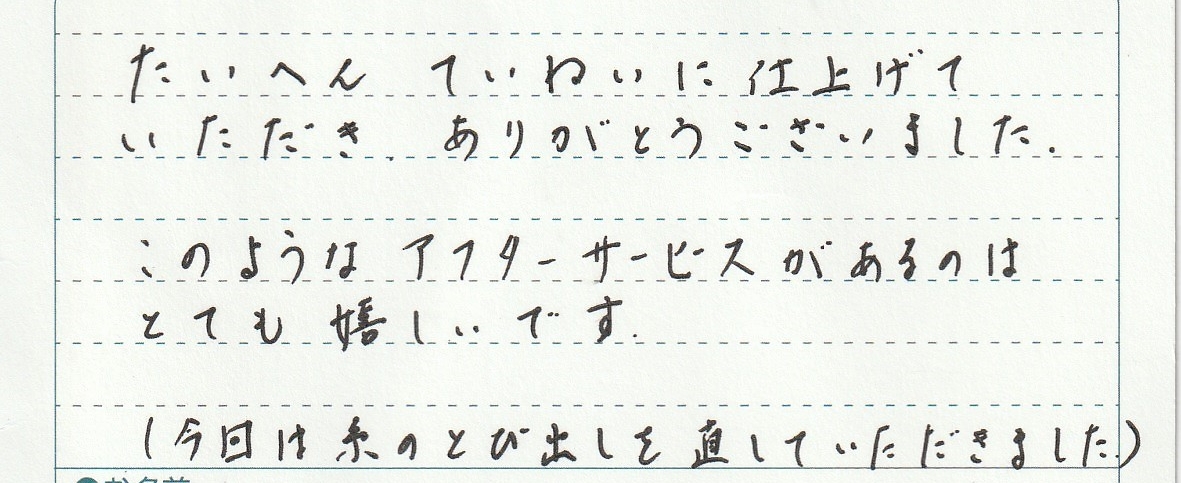 たいへん ていねいに 仕上げて
いただき、ありがとうございました。
このような アフターサービスがあるのは
とても 嬉しいです。
(今回は糸のとび出しを直していただきました。)